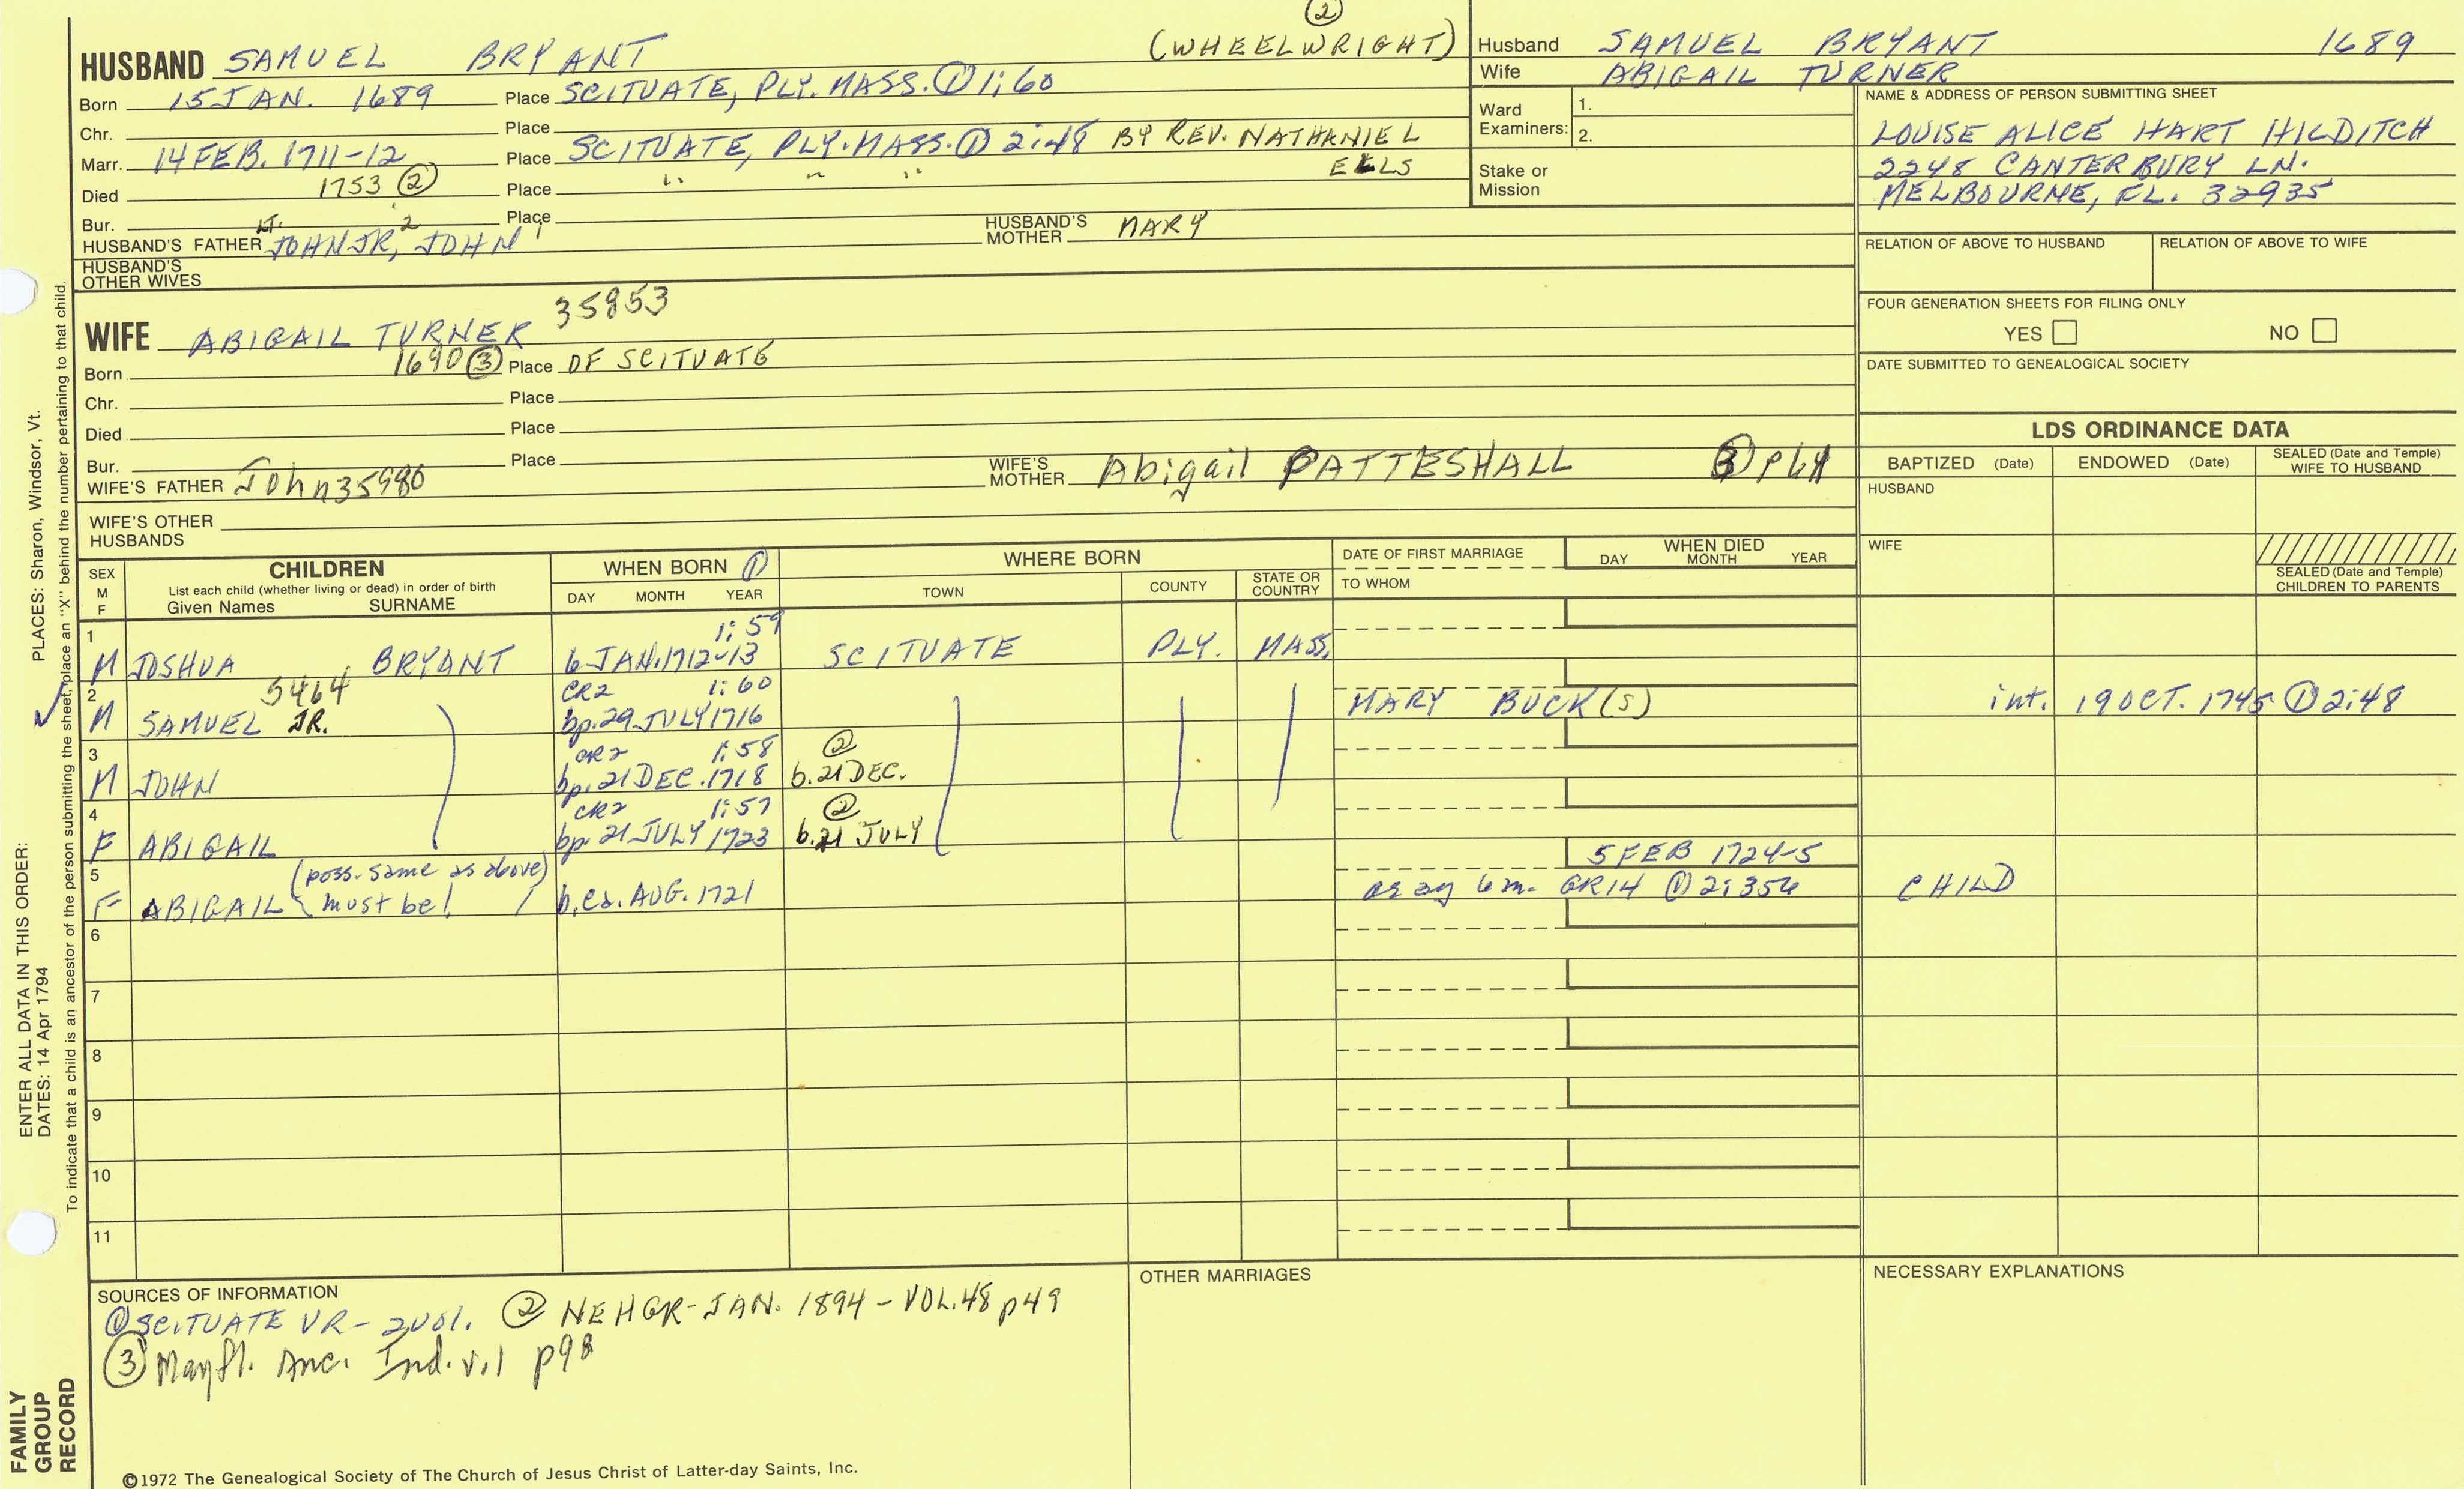 ②
HUSBAND SAMUEL BRYANT (WHEELWRIGHT)
Born 15 JAN. 1689 Place SCITUATE, PLY. MASS. ① 1:60
Chr. Place
Marr. 14 FEB. 1711-12 Place SCITUATE, PLY. MASS. ① 2:48 BY REV. NATHANIEL
ELLS
Died 1753 ② Place " " "
Bur. Place
LT. 2 1
HUSBAND'S FATHER JOHN JR, JOHN HUSBAND'S MOTHER MARY
HUSBAND'S
OTHER WIVES
35853
WIFE ABIGAIL TURNER
Born 1690 ③ Place OF SCITUATE
Chr. Place
Died Place
Bur. Place
WIFE'S FATHER John 35980 WIFE'S MOTHER Abigail PATTESHALL ③
WIFE'S OTHER
HUSBANDS
Husband SAMUEL BRYANT 1689
Wife ABIGAIL TURNER
Ward
Examiners:
1.
2.
Stake or
Mission
NAME & ADDRESS OF PERSON SUBMITTING SHEET
LOUISE ALICE HART HILDITCH
2248 CANTERBURY LN.
MELBOURNE, FL. 32935
RELATION OF ABOVE TO HUSBAND RELATION OF ABOVE TO WIFE
FOUR GENERATION SHEETS FOR FILING ONLY
YES NO
DATE SUBMITTED TO GENEALOGICAL SOCIETY
LDS ORDINANCE DATA
BAPTIZED (Date) ENDOWED (Date) SEALED (Date and Temple) WIFE TO HUSBAND
HUSBAND
WIFE
SEALED (Date and Temple)
CHILDREN TO PARENTS
SEX
M
F
CHILDREN
List each child (whether living or dead) in order of birth
Given Names SURNAME
WHEN BORN ①
DAY MONTH YEAR
WHERE BORN
TOWN COUNTY STATE OR COUNTRY
DATE OF FIRST MARRIAGE
TO WHOM
WHEN DIED
DAY MONTH YEAR
1 1:59
M JOSHUA BRYANT 6 JAN. 1712-13 SCITUATE PLY. MASS.
2 5464 CR2 1:60
M SAMUEL JR. bp. 29 JULY 1716 MARY BUCK(S) int. 19 OCT. 1745 ① 2:48
3 CR2 1:58 ②
M JOHN bp. 21 DEC. 1718 b. 21 DEC.
4 CR2 1:57 ②
F ABIGAIL bp. 21 JULY 1723 b. 21 JULY
5 (poss. same as above) 5 FEB 1724-5
F ABIGAIL must be! b. ca. AUG. 1721 GR14 ① 2:356 CHILD
6
7
8
9
10
11
SOURCES OF INFORMATION
① SCITUATE VR - 2 vol. ② NEHGR - JAN. 1894 - VOL. 48 p49
③ Mayfl. Anc. Ind. v.1 p98
OTHER MARRIAGES
NECESSARY EXPLANATIONS
©1972 The Genealogical Society of The Church of Jesus Christ of Latter-day Saints, Inc.
FAMILY
GROUP
RECORD
ENTER ALL DATA IN THIS ORDER:
DATES: 14 Apr 1794
PLACES: Sharon, Windsor, Vt.
To indicate that a child is an ancestor of the person submitting the sheet, place an "X" behind the number pertaining to that child.